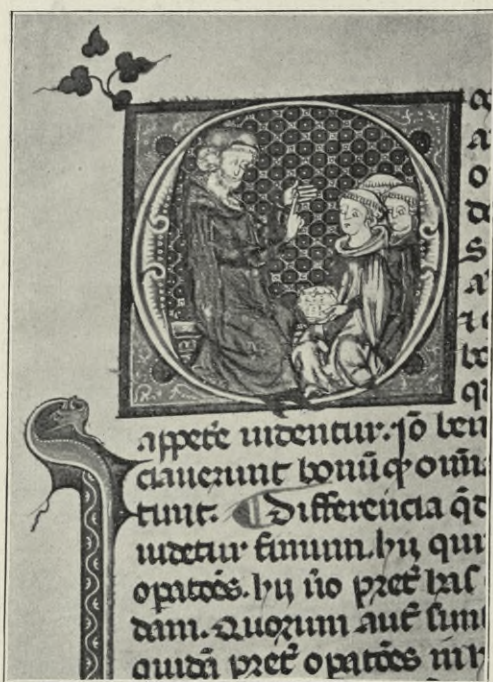 a
a
o
d
s
a
bo
q
appetē uidentur. Iō ben
ciauerunt bonū ꝙ omīa
tunt. ¶ Differencia q̄d
uidetur finium. hij qui
opatōes. hij ūo pret̄ has
dam. Quorum aut̄ sunt
quidā pret̄ opatōes in h